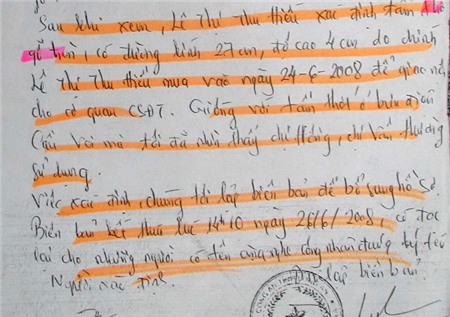 Sau khi xem, Lê Thị Thu Thếu xác định tấm thớt
gỗ tròn, có đường kính 27 cm, độ cao 4 cm do chính
Lê Thị Thu Thếu mua vào ngày 24-6-2008 để giao nộp
cho cơ quan CSĐT. Giống với tấm thớt ở bưu điện
Cầu Voi mà tôi đã nhìn thấy chị Hồng, chị Vân thường
sử dụng.
Việc xác định, chúng tôi lập biên bản để bổ sung hồ sơ.
Biên bản kết thúc lúc 14h10 ngày 26/6/2008, có đọc
lại cho những người có tên cùng nghe công nhận đúng ký tên
Người xác định. lập biên bản.